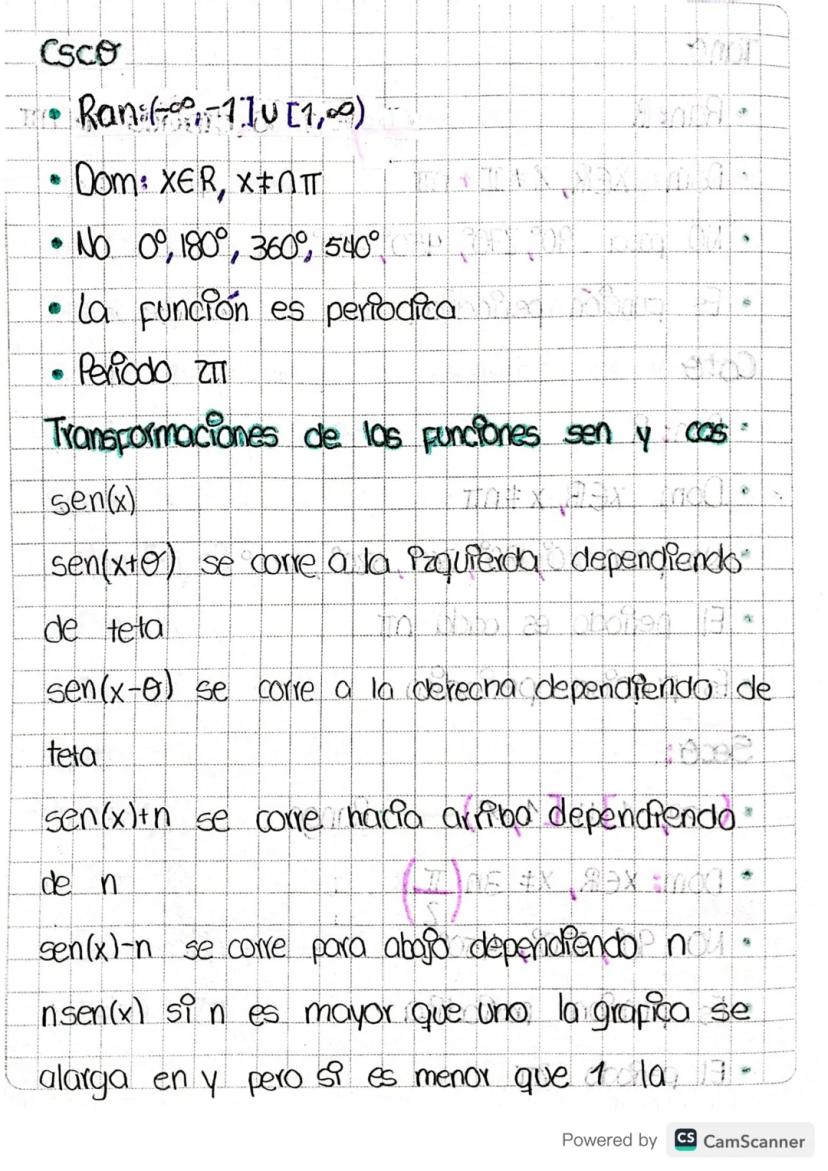 Cscθ
• Ran:(-∞,-1]∪[1,∞)
• Dom: X∈R, X≠nπ
• No 0°, 180°, 360°, 540°
• La función es periodica
• Periodo 2π
Transformaciones de las funciones sen y cos
sen(x)
sen(x+θ) se corre a la izquierda dependiendo
de teta
sen(x-θ) se corre a la derecha dependiendo de
teta
sen(x)+n se corre hacia arriba dependiendo
de n
sen(x)-n se corre para abajo dependiendo n
nsen(x) si n es mayor que uno la grafica se
alarga en y pero si es menor que 1 la
Powered by CS CamScanner